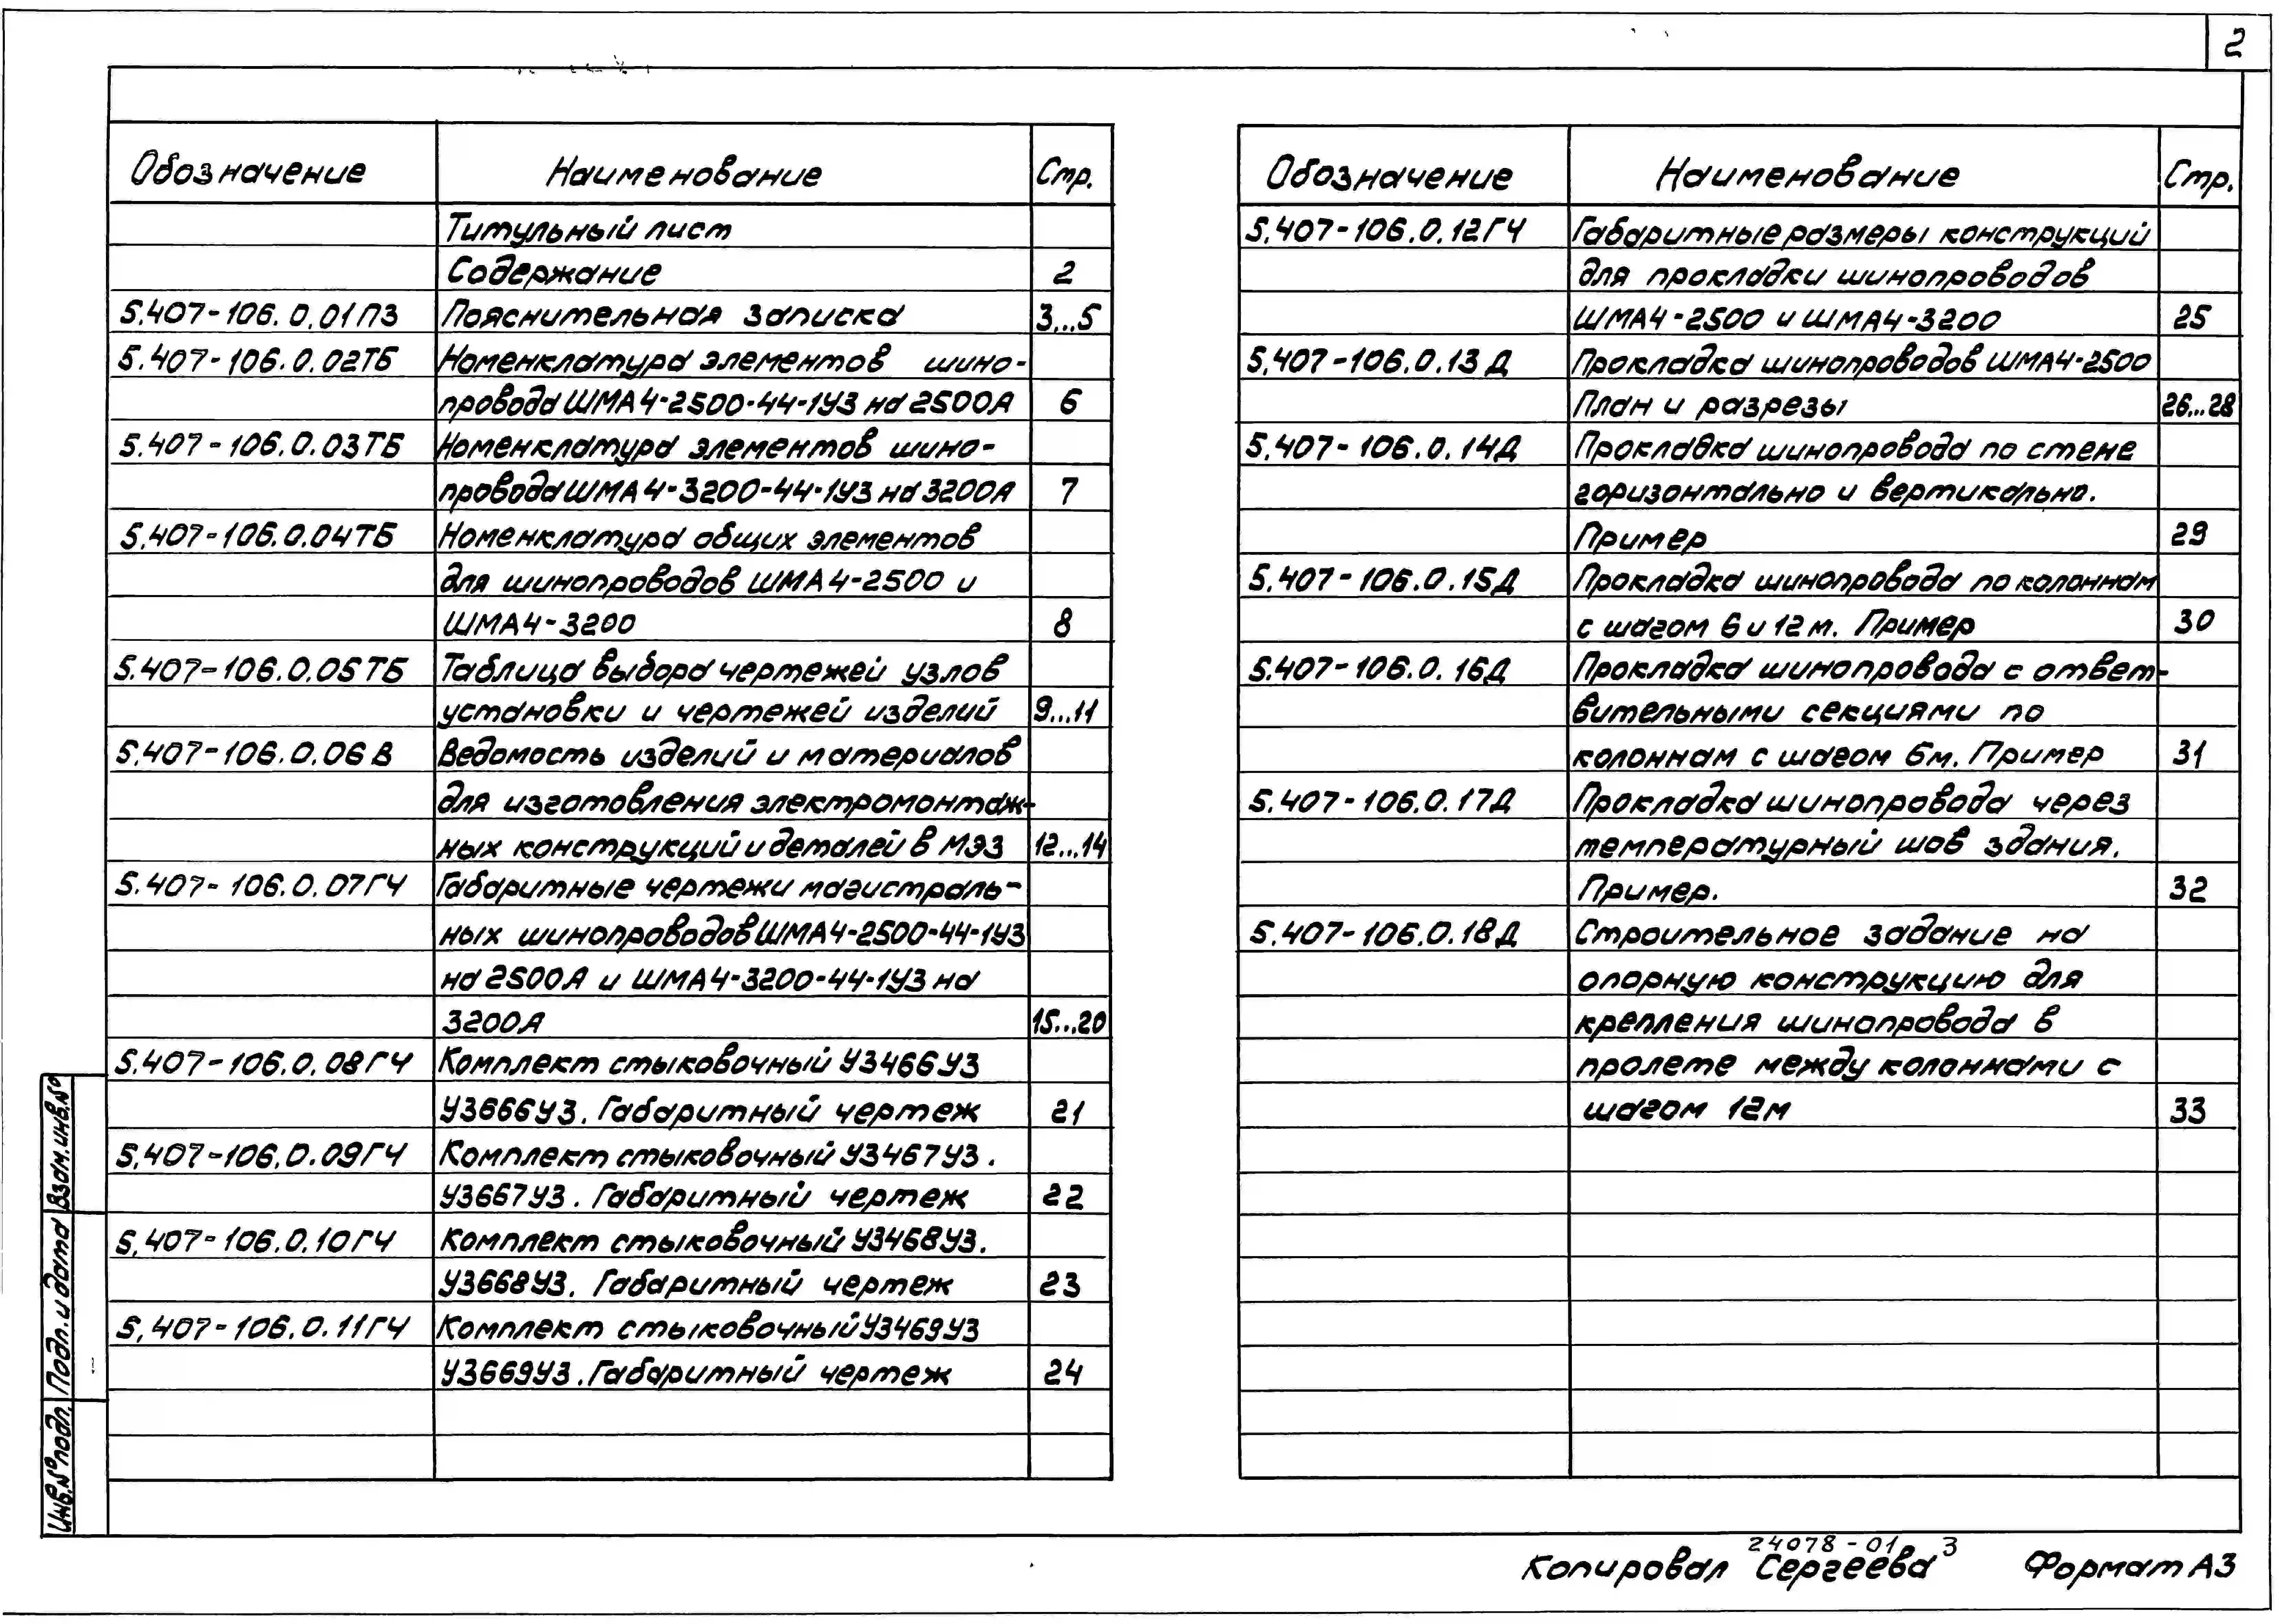 2
Обозначение Наименование Стр.
Титульный лист
Содержание 2
5.407-106.0.01ПЗ Пояснительная записка 3...5
5.407-106.0.02ТБ Номенклатура элементов шино-
провода ШМА4-2500-44-1У3 на 2500А 6
5.407-106.0.03ТБ Номенклатура элементов шино-
провода ШМА4-3200-44-1У3 на 3200А 7
5.407-106.0.04ТБ Номенклатура общих элементов
для шинопроводов ШМА4-2500 и
ШМА4-3200 8
5.407-106.0.05ТБ Таблица выбора чертежей узлов
установки и чертежей изделий 9...11
5.407-106.0.06В Ведомость изделий и материалов
для изготовления электромонтаж-
ных конструкций и деталей в МЭЗ 12...14
5.407-106.0.07ГЧ Габаритные чертежи магистраль-
ных шинопроводов ШМА4-2500-44-1У3
на 2500А и ШМА4-3200-44-1У3 на
3200А 15...20
5.407-106.0.08ГЧ Комплект стыковочный У3466У3
У3666У3. Габаритный чертеж 21
5.407-106.0.09ГЧ Комплект стыковочный У3467У3.
У3667У3. Габаритный чертеж 22
5.407-106.0.10ГЧ Комплект стыковочный У3468У3.
У3668У3. Габаритный чертеж 23
5.407-106.0.11ГЧ Комплект стыковочный У3469У3
У3669У3. Габаритный чертеж 24
Обозначение Наименование Стр.
5.407-106.0.12ГЧ Габаритные размеры конструкций
для прокладки шинопроводов
ШМА4-2500 и ШМА4-3200 25
5.407-106.0.13Д Прокладка шинопроводов ШМА4-2500
План и разрезы 26...28
5.407-106.0.14Д Прокладка шинопровода по стене
горизонтально и вертикально.
Пример 29
5.407-106.0.15Д Прокладка шинопровода по колоннам
с шагом 6 и 12 м. Пример 30
5.407-106.0.16Д Прокладка шинопровода с ответ-
вительными секциями по
колоннам с шагом 6м. Пример 31
5.407-106.0.17Д Прокладка шинопровода через
температурный шов здания.
Пример. 32
5.407-106.0.18Д Строительное задание на
опорную конструкцию для
крепления шинопровода в
пролете между колоннами с
шагом 12м 33
Взам.инв.№
Подп. и дата
Инв.№ подл.
24078-01 3
Копировал Сергеева Формат А3